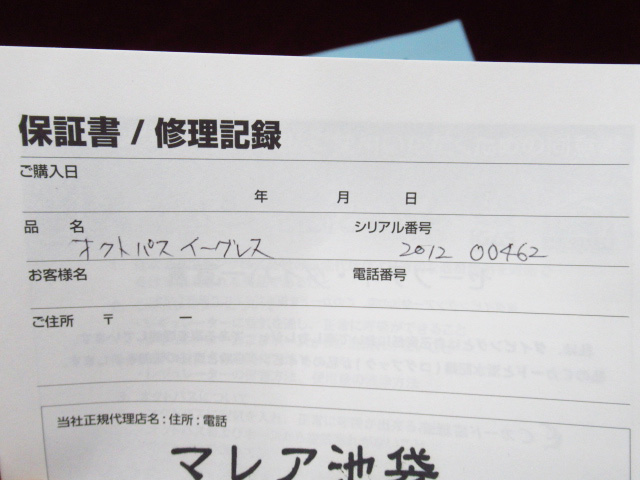 保証書 / 修理記録
ご購入日
年 月 日
品 名 シリアル番号
オクトパス イーグレス 2012 00462
お客様名 電話番号
ご住所 〒 ー
当社正規代理店名:住所:電話
マレア池袋